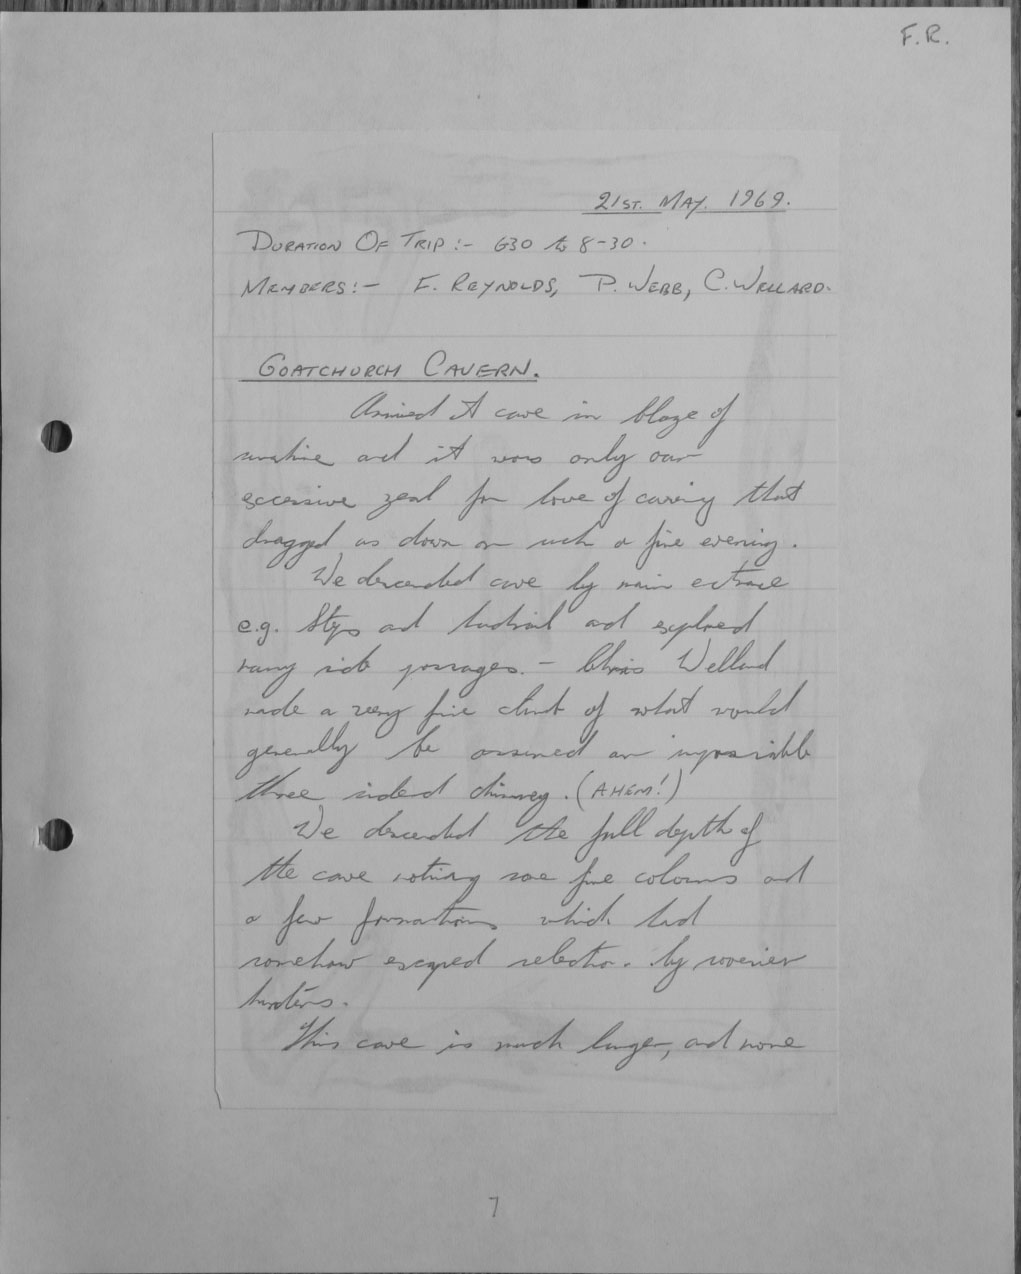 F.R.
21ST. MAY. 1969.
DURATION OF TRIP:- 630 to 8-30.
MEMBERS:- F. REYNOLDS, P. WEBB, C. WELLARD.
GOATCHURCH CAVERN.
Arrived at cave in blaze of
sunshine and it was only our
excessive zeal for love of caving that
dragged us down on such a fine evening.
We descended cave by main entrance
e.g. Steps and handrail and explored
many side passages. - Chris Wellard
made a very fine climb of what would
generally be assumed an impossible
three sided chimney. (AHEM!)
We descended the full depth of
the cave noting some fine colours and
a few formations which had
somehow escaped selection by souvenier
hunters.
This cave is much larger, and more
7